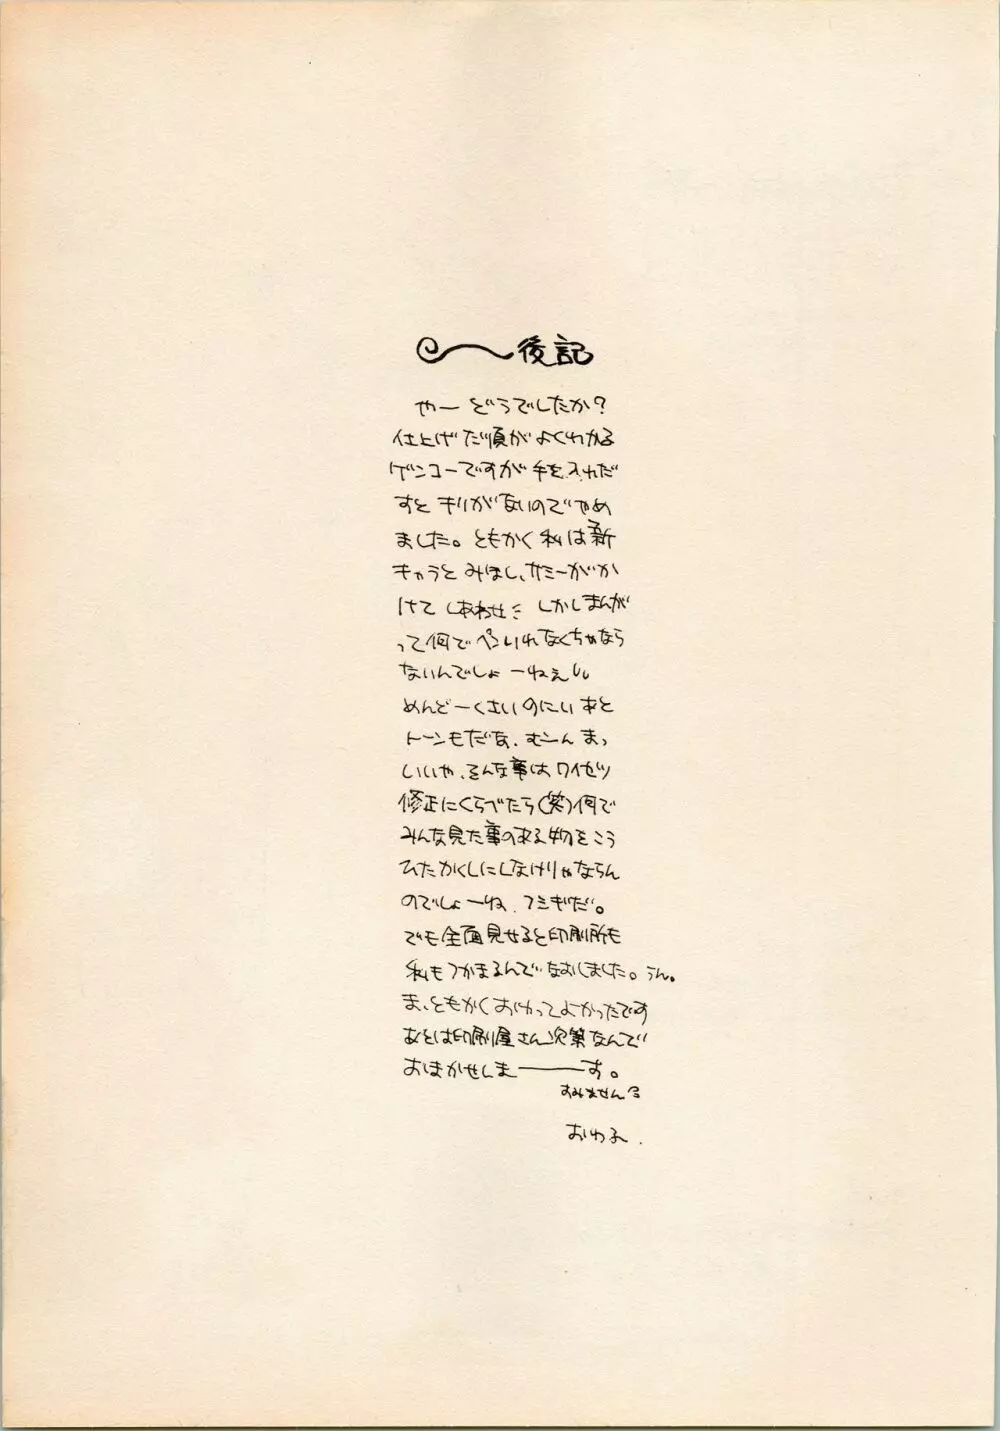 後記
やー どうでしたか?
仕上げた順が よくわかる
ゲンコーですが 手を入れだ
すと キリがないのでやめ
ました。ともかく 私は新
キャラと みほし、サミーがか
けて しあわせミ しかしまんが
って何で ペンいれなくちゃなら
ないんでしょーねぇ
めんどーくさいのにい あと
トーンもだな、むーん まっ
いいや、そんな事はワイセツ
修正にくらべたら(笑)何で
みんな見た事のある物をこう
ひたかくしにしなけりゃならん
のでしょーね、フシギだ。
でも全面見せると印刷所も
私もつかまるんでなおしました。うん。
ま、ともかくおわってよかったです
あとは印刷屋さん次第なんで
おまかせしま―――す。
すみません
おわる.